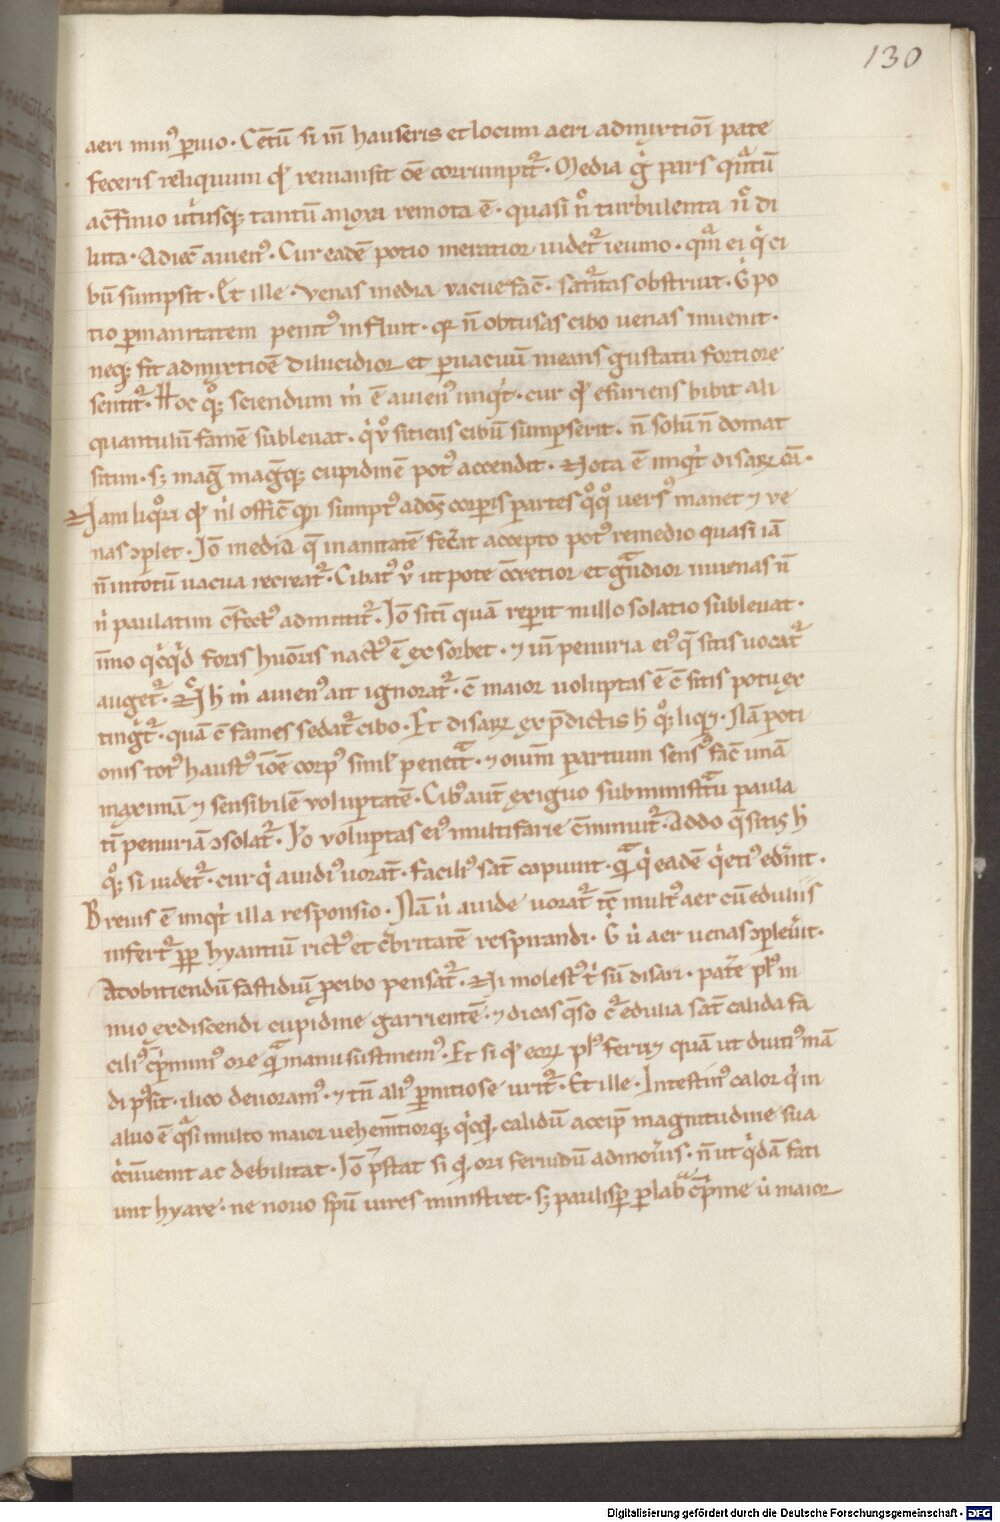 130
aeri min⁹ ꝑuio · Cet̄ū si vī hauseris et locum aeri admixtiōi pate
feceris reliquum qđ remansit oē corrumpit᷒ · Media g̊ pars qn̄tū
ac̄finio ut͛usq; tantū a noxa remota ē · quasi n̊ turbulenta n̊ di
luta · Adiec̄ auien⁹ · Cur eadē potio meratior uidet᷒ ieiuno · qm̄ ei qͥ ci
bū sumpsit · Et ille · Venas media vacuefac̄ · sat᷒itas obstruit · G̊ po
tio ꝑmanitatem penit⁹ influit · qꝛ n̄ obtusas cibo uenas inuenit ·
neq; fit admixtiōē dilucidior et ꝑ uacuū means gustatu fortiore
sentit᷒ · Hoc q̊q; sciendum m̊ ē auien⁹ inqͥt · cur qđ esuriens bibit ali
quantulū famē subleuat · qͥ v̊ sitiens cibū sumpserit · n̄ solū n̄ domat
sitim · s; mag̅ mag̅q; cupidinē pot⁹ accendit · Nota ē inqͥt disarꝝ cā ·
Nam liq̊ri qđ nͥl offic̄ qn̄ sumpt⁹ ad oēs corꝑis partes q̊q̊ uers⁹ manet ⁊ ve
nas ꝯplet · Iō media q̄ inanitatē fec͛at accepto pot⁹ remedio quasi iā
n̄ in totū uacua recreat᷒ · Cibat⁹ v̊ utpote ꝯcretior et gͣndior in uenas n̄
nͥ paulatim ꝯfect⁹ admittit᷒ · Iō sitī quā reperit nullo solatio subleuat ·
īmo qͥcqͥd foris huōris nact⁹ ē exsorbet · ⁊ in̄ penuria ei⁹ q̄ sitis uocat᷒
auget᷒ · Nͨ h̊ m̊ auien⁹ ait ignorat᷒ · c̄ maior uoluptas ē c̄ sitis potu ex
tingͥt᷒ · quā c̄ fames sedat᷒ cibo · Et disarꝝ ex p̄dictis h̊ q̊q; liq; · Nā poti
onis tot⁹ haust⁹ ī oē corp⁹ simĺ penetͣt · ⁊ oīum partium sens⁹ fac̄ unā
maximā ⁊ sensibilē voluptatē · Cib⁹ aut̄ exiguo subministtͣu paula
tī penuriā ꝯsolat᷒ · Iō voluptas ei⁹ multifarie c̄minuit᷒ · Addo q̄sitis h̊
q̊q; si uidet᷒ · cur qͥ auidi⁹ uorat̄ · facili⁹ sat̄ capiunt · qͣ qͥ eadē qͥeti⁹ ed͛int ·
Breuis ē inqͥt illa responsio · Nā u̇ auide uorat᷒ tc̄ mult⁹ aer cū eduliis
infert᷒ ꝓp hyantiū rict⁹ et c͛britatē respirandi · G̊ u̇ aer uenas ꝯpleu͛it ·
Ad obitiendū fastidiū ꝓ cibo pensat᷒ · Ni molest⁹ tͥ sū disari · pat͛e pĺ⁹ ni
mio exdiscendi cupidine garrientē · ⁊ dicas q̄so c͛ edulia sat̄ calida fa
cili⁹ ꝯprimim⁹ ore qͣ manu sustinem⁹ · Et si qđ eoꝝ pĺ⁹ feru; quā ut diuti⁹ mā
di p⁹sit · ilico deuoram⁹ · ⁊ tn̄ ali⁹ ꝑnitiose urit᷒ · Et ille · Intestin⁹ calor qͥ in
aluo ē qͣsi multo maior uehem̄tiorq; qͥcqͥd calidū accip̄ magnitudine sua
cͥcūuenit ac debilitat · Iō p̄stat si qͥd ori feruidū admou͛is · n̄ ut qͥdā fati
unt hyare · ne nouo spū uires ministret · s; paulisꝑ ꝑ labͣ ꝯprime u̇ maior
Digitalisierung gefördert durch die Deutsche Forschungsgemeinschaft · DFG